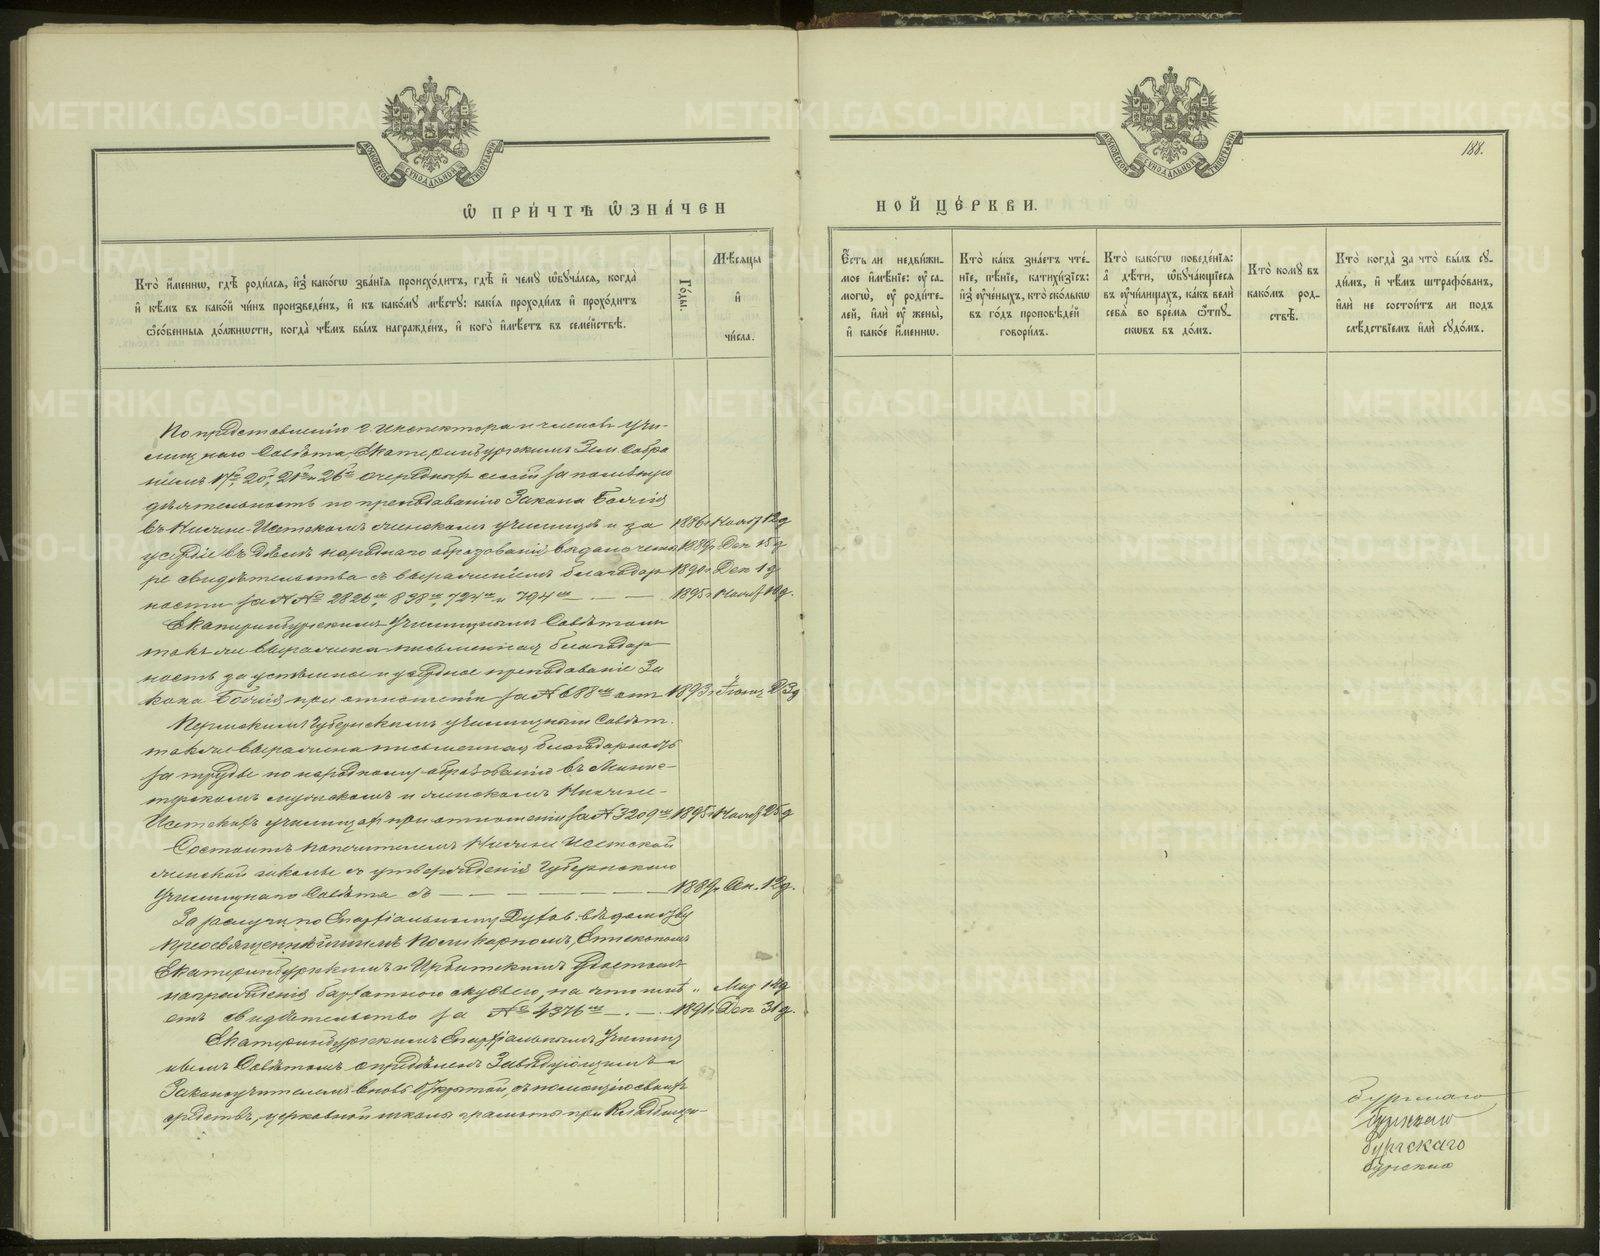 188.
Ѿ ПРИ́ЧТѢ Ѡ҆ЗНА́ЧЕН
НОЙ ЦЕ́РКВИ.
Кто̀ и҆́меннѡ, гдѣ̀ роди́лсѧ, и҆з̾ како́гѡ зва́нїѧ происхо́дитъ, гдѣ̀ и҆ чемꙋ̀ ѡ҆бꙋча́лсѧ, когда̀
и҆ кѣ́мъ въ како́й чи́нъ произведе́нъ, и҆ къ како́мꙋ мѣ́стꙋ: какі̑ѧ проходи́лъ и҆ прохо́дитъ
ѻ҆со́бенныѧ до́лжности, когда̀ чѣ́мъ бы́лъ награжде́нъ, и҆ кого̀ и҆мѣ́етъ въ семе́йствѣ.
Го́ды.
Мѣ́сѧцы
и҆
чи́сла.
Є҆́сть ли недви́жи-
мое и҆мѣ́нїе: ᲂу҆ са-
могѡ̀, ᲂу҆ роди́те-
лей, и҆лѝ ᲂу҆ жены̀,
и҆ како́е и҆́меннѡ.
Кто̀ ка́къ зна́етъ чте́-
нїе, пѣ́нїе, катихи́зїсъ:
и҆з̾ ᲂу҆че́ныхъ, кто̀ ско́лькѡ
въ го́дъ про́повѣдей
говори́лъ.
Кто̀ како́гѡ поведе́нїѧ:
а҆ дѣ́ти, ѡ҆бꙋча́ющїесѧ
въ ᲂу҆чи́лищахъ, ка́къ велѝ
себѧ̀ во вре́мѧ ѿпꙋ-
скѡвъ въ до́мъ.
Кто̀ комꙋ̀ въ
како́мъ род-
ствѣ̀.
Кто̀ когда̀ за что̀ бы́лъ сꙋ-
ди́мъ, и҆ чѣ́мъ штрафо́ванъ,
и҆лѝ не состои́тъ ли под̾
слѣ́дствїемъ и҆лѝ сꙋдо́мъ.
По представленію г. Инспектора и членовъ Учи-
лищнаго Совѣта, Екатеринбургскимъ Зем. Собра
ніемъ 17й, 20й, 21й и 26й очередныхъ сессій за полезную
дѣятельность по преподаванію Закона Божія
въ Нижне-Исетскомъ женскомъ училищѣ и за 1886 г. Нояб 12 д
усердіе въ дѣлѣ народнаго образованія, выдано четы 1889 г. Дек 15 д
ре свидѣтельства съ выраженіемъ благодар 1890 г. Дек 1 д
ности за №№ 2826мъ, 838мъ, 724мъ и 794мъ — . — — 1895 г. Нояб 10 д.
Екатеринбургскимъ Училищнымъ Совѣтомъ
также выражена письменная благодар
ность за успѣшное и усердное преподаваніе За
кона Божія при отношеніи за № 688мъ отъ 1893 г. 23 д
Пермскимъ Губернскимъ училищнымъ Совѣт.
также выражена письменная благодарность
за труды по народному образованію въ Минис-
терскомъ мужскомъ и женскомъ Нижне-
Исетскихъ училищахъ при отношеніи за № 3209мъ 1895 г. Нояб 25 д
Состоитъ попечителемъ Нижне Исетской
женской школы съ утвержденія Губернскаго
Училищнаго Совѣта съ — — — — — — 1889 г. Ок. 12 д.
За заслуги по Епархіальному Духов. вѣдомству
Преосвященнѣйшимъ Поликарпомъ, Епископомъ
Екатеринбургскимъ и Ирбитскимъ удостоенъ
награжденія бархатною скуфьею, на что имѣ „ Мая 14 д
етъ свидѣтельство за № 4376мъ — . — . 1891 г. Дек 31 д.
Екатеринбургскимъ Епархіальнымъ Училищ
нымъ Совѣтомъ опредѣленъ Завѣдующимъ и
Законоучителемъ вновь открытой, съ помощію своихъ
средствъ, церковной школы грамоты при Кладбищ-
бургскаго
бургскаго
бургскаго
бургска